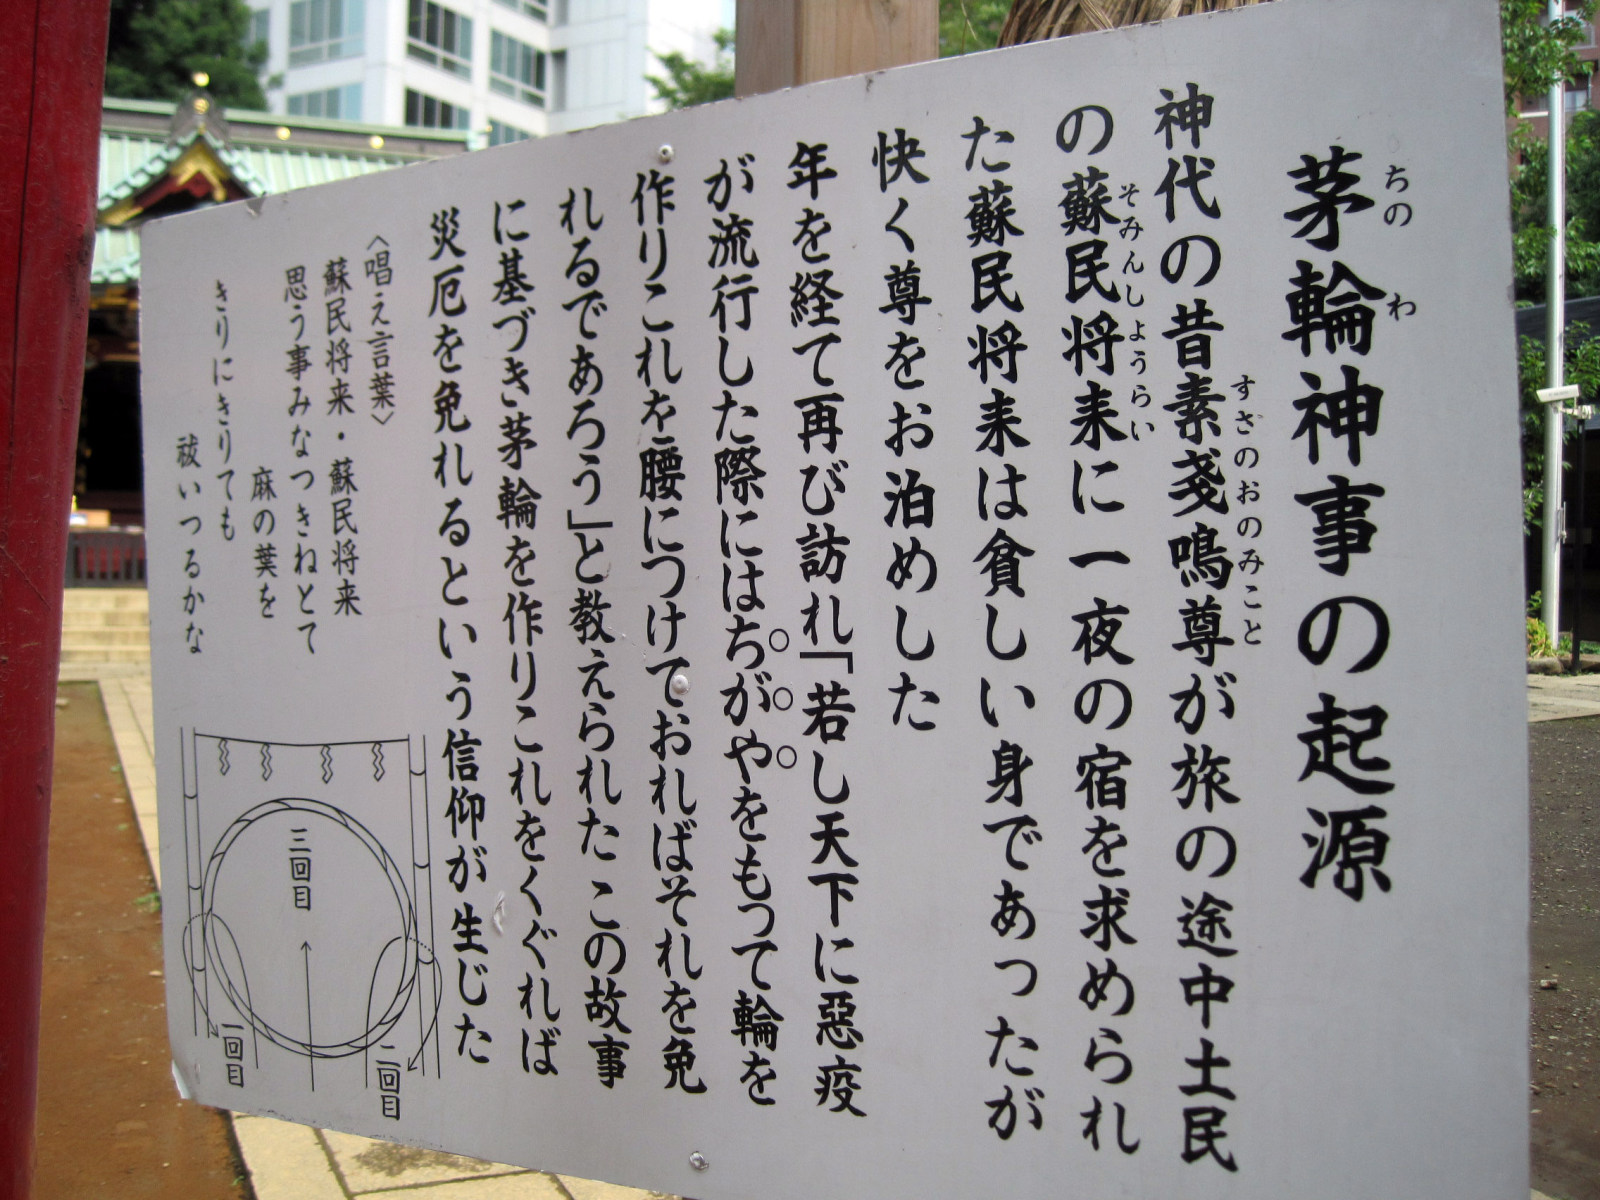 茅輪神事の起源
ちの
わ
神代の昔素戔鳴尊が旅の途中土民
すさのおのみこと
の蘇民将来に一夜の宿を求められ
そみんしようらい
た蘇民将来は貧しい身であったが
快く尊をお泊めした
年を経て再び訪れ「若し天下に惡疫
が流行した際にはちがやをもって輪を
作りこれを腰につけておればそれを免
れるであろう」と教えられたこの故事
に基づき茅輪を作りこれをくぐれば
災厄を免れるという信仰が生じた
〈唱え言葉〉
蘇民将来・蘇民将来
思う事みなつきねとて
麻の葉を
きりにきりても
祓いつるかな
三回目
一回目
二回目